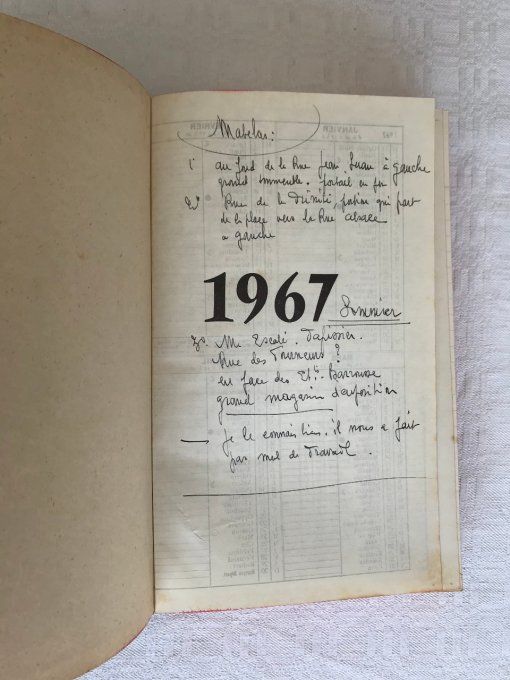 Matelas:
1° au fond de la Rue Jean Suau à gauche
grand immeuble. portail en fer
2° Rue de la Trinité, portion qui part
de la place vers la Rue Alsace
à gauche
1967
Sommier
3° Mr Escalé. Tapissier.
Rue des Tourneurs ?
en face des Ets Barrousse
grand magasin d'exposition
— je le connais bien. il nous a fait
pas mal de travail.